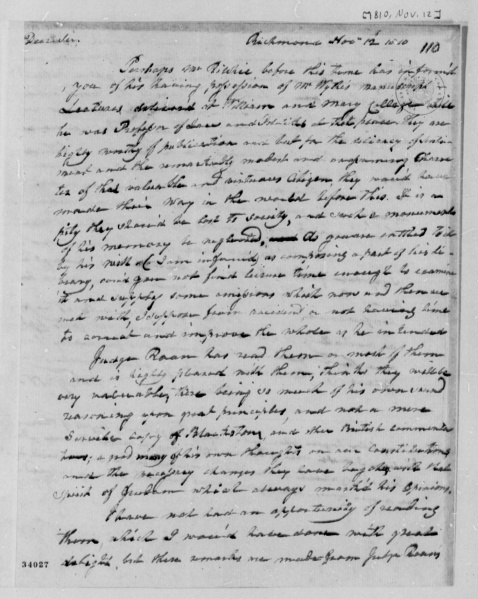 [1810, Nov. 12]
Dear sir, Richmond Nov. 12th 1810
110
Perhaps Mr Ritchie before this time has inform'd
you of his having possession of Mr Wythe's manuscript
Lectures delivered at William and Mary College while
he was Professor of Law and Politics at that place. They are
highly worthy of publication and but for the delicacy of senti-
ment and the remarkably modest and unassuming charac-
ter of that valuable and virtuous Citizen they would have
made their way in the world before this. It is a
pity they should be lost to society, and such a monument
of his memory be neglected, as you are entitled to it
by his will (I am informed) as composing a part of his li-
brary, could you not find leisure time enough to examine
it and supply some omissions which now and then are
met with, I suppose from accident or not having time
to correct and improve the whole as he intended
Judge Roan has read them or most of them
and is highly pleased with them, thinks they will be
very valuable, there being so much of his own sound
reasoning upon great principles and not a mere
servile copy of Blackstone and other British commenta
tors, a good many of his own thoughts on our Constitutions
and the necessary changes they have begotten with that
spirit of freedom which always mark'd his opinions.
I have not had an opportunity of reading
them which I would have done with great
delight, but these remarks are made from Judge Roan's
34027